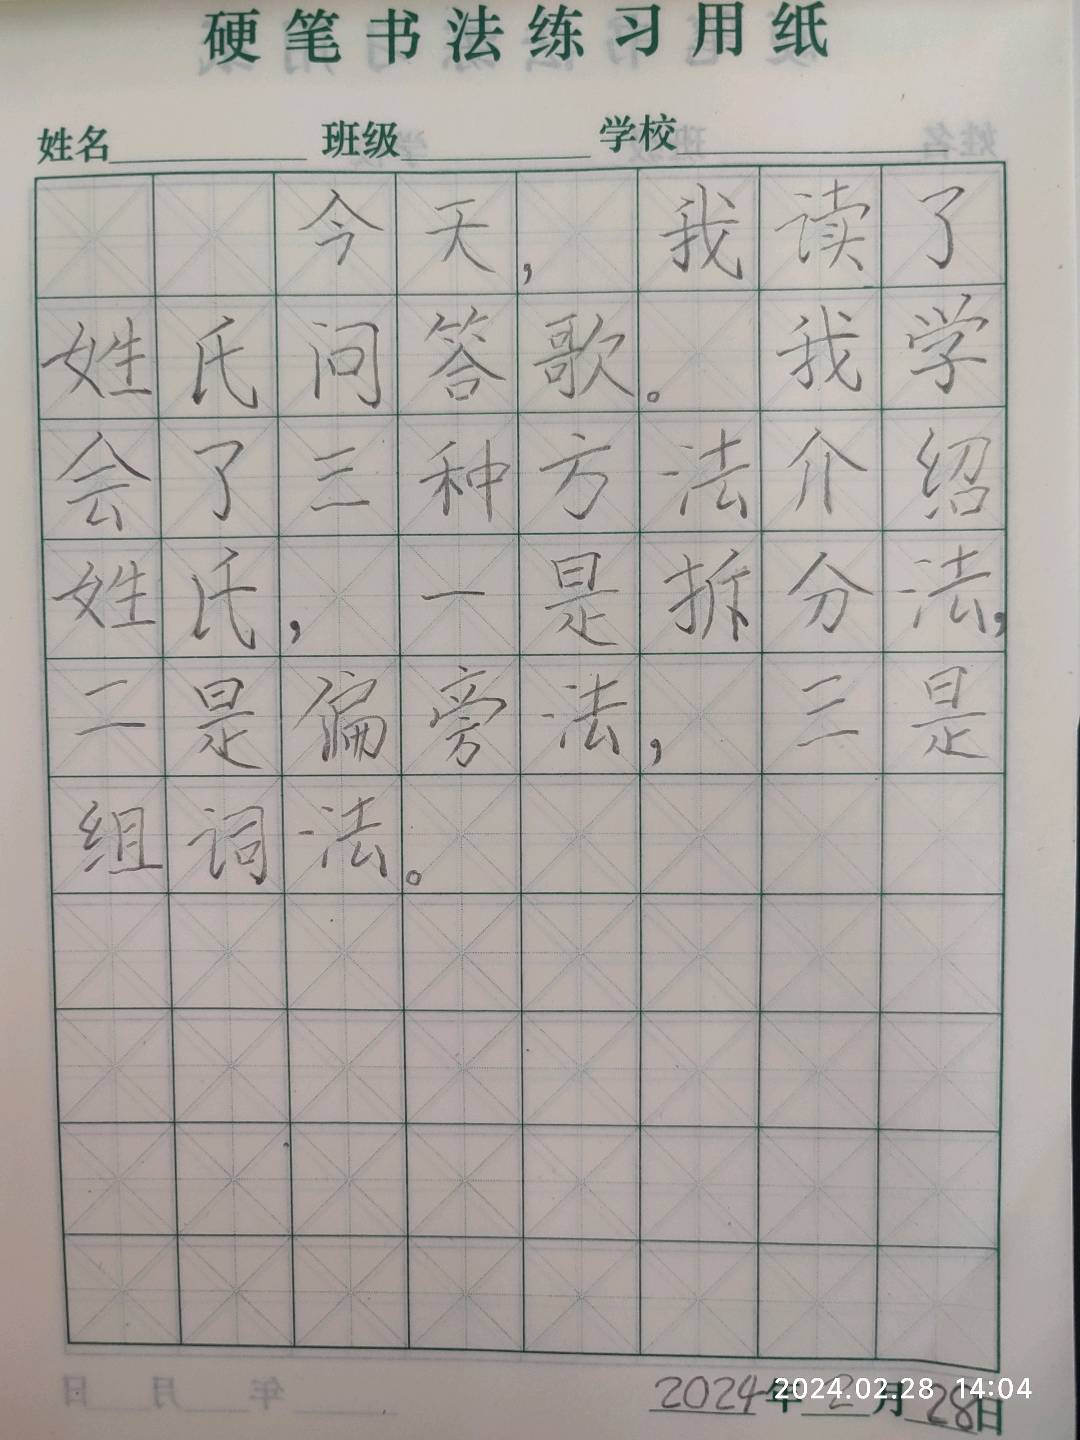 硬笔书法练习用纸
姓名 班级 学校
今天,我读了
姓氏问答歌。我学
会了三种方法介绍
姓氏,一是拆分法,
二是偏旁法,三是
组词法。
2024年2月28日
2024.02.28 14:04